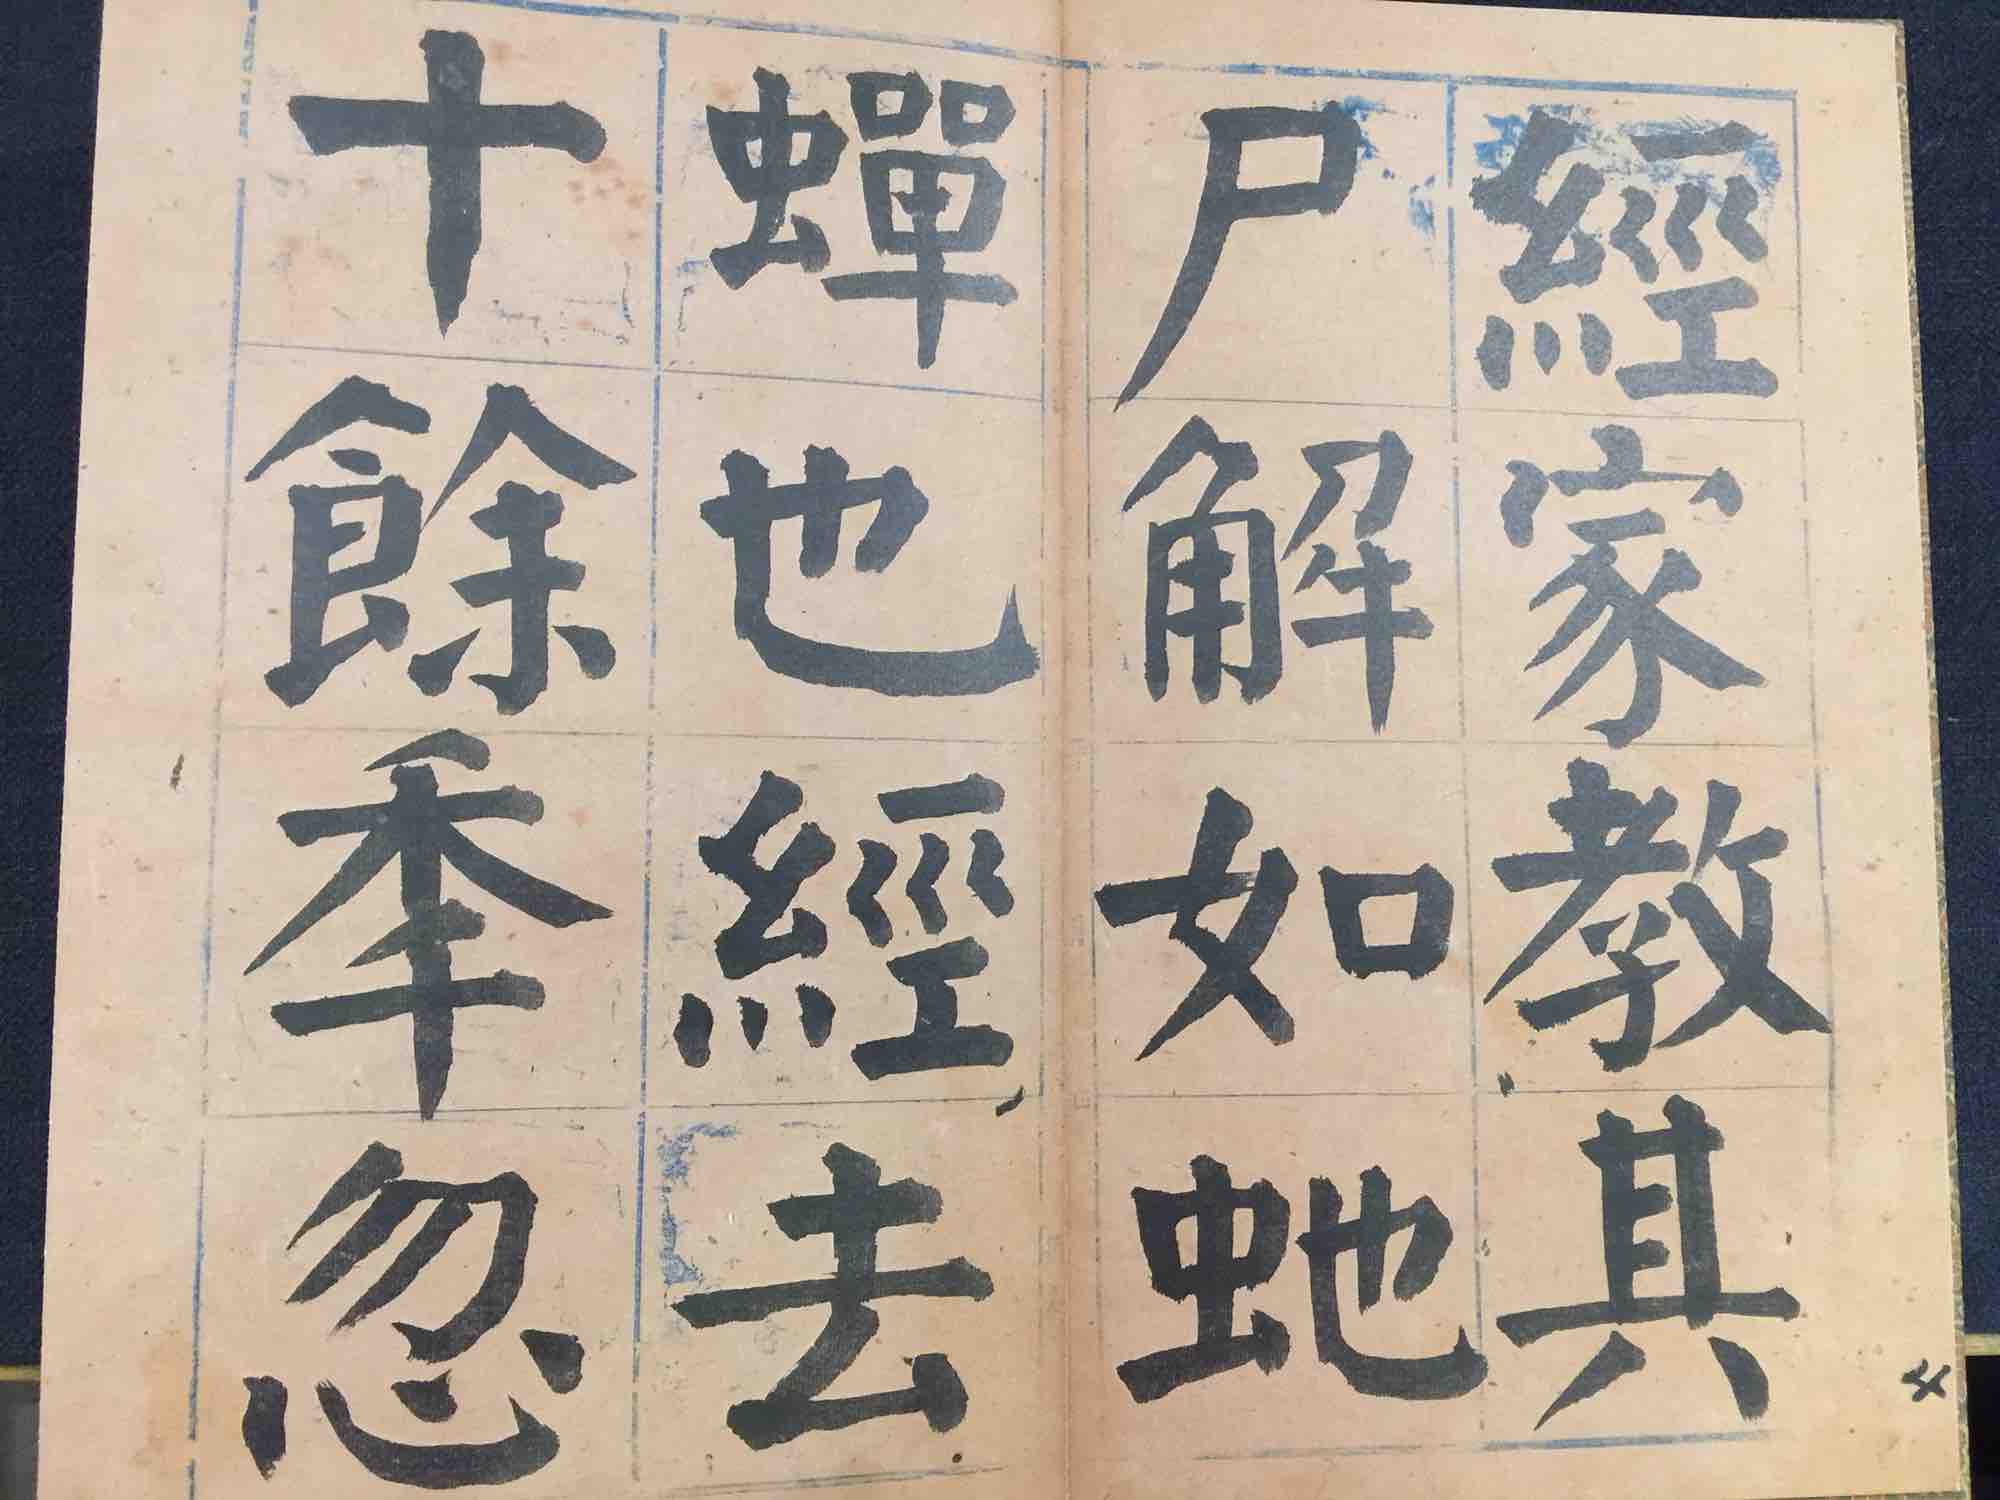 經家教其
尸解如虵
蟬也經去
十餘秊忽